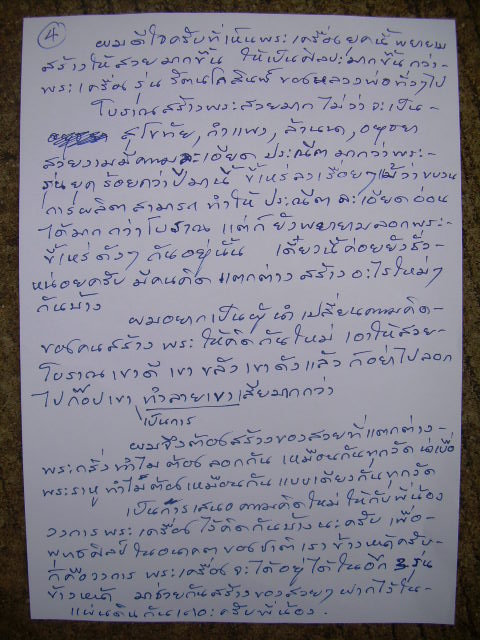 4
ผมดีใจครับที่เห็นพระเครื่องยุคนี้พยายาม
สร้างให้สวยมากขึ้น ให้เป็นศิลปะมากขึ้นกว่า-
พระเครื่อง รุ่น รัตนโกสินทร์ ของหลวงพ่อที่ๆไป
โบราณสร้างพระสวยมาก ไม่ว่าจะเป็น-
สุโขทัย, กำแพง, ล้านนา, อยุธยา
สวยงามมีความละเอียด ประณีตมากกว่าพระ-
รุ่นยุค ร้อยกว่าปีมานี้ ขี้เหร่ลงเรื่อยๆ แม้ว่าขบวน
การผลิตสามารถทำให้ ประณีต ละเอียดอ่อน
ได้มากกว่าโบราณ แต่ก็ยังพยายามลอกพระ-
ขี้เหร่ดังๆ กันอยู่นั้น เดี๋ยวนี้ค่อยยังชั่ว-
หน่อยครับ มีคนคิด แตกต่าง สร้างอะไรใหม่ๆ
กันบ้าง
ผมอยากเป็นผู้นำ เปลี่ยนความคิด-
ของคนสร้างพระ ให้คิดกันใหม่ เอาให้สวย-
โบราณเขาดี เขาขลัง เขาดังแล้ว ก็อย่าไปลอก
ไปก๊อปเขา ทำลายเขาเสียมากกว่า
เป็นการ
ผมจึงต้องสร้างของสวยที่แตกต่าง-
พระกริ่งทำไมต้องลอกกัน เหมือนกันทุกวัด น่าเบื่อ
พระราหูทำไมต้องเหมือนกัน แบบเดียวกันทุกวัด
เป็นการเสนอความคิดใหม่ ให้กับพี่น้อง
วงการพระเครื่องไว้คิดกันบ้างนะครับ เพื่อ-
พุทธศิลป์ในอนาคตของชาติเราข้างหน้าครับ-
ก็คือวงการพระเครื่องจะได้อยู่ได้ในอีก 3 รุ่น
ข้างหน้า มาช่วยกันสร้างของสวยๆฝากไว้ใน-
แผ่นดินกันเถอะครับพี่น้อง.